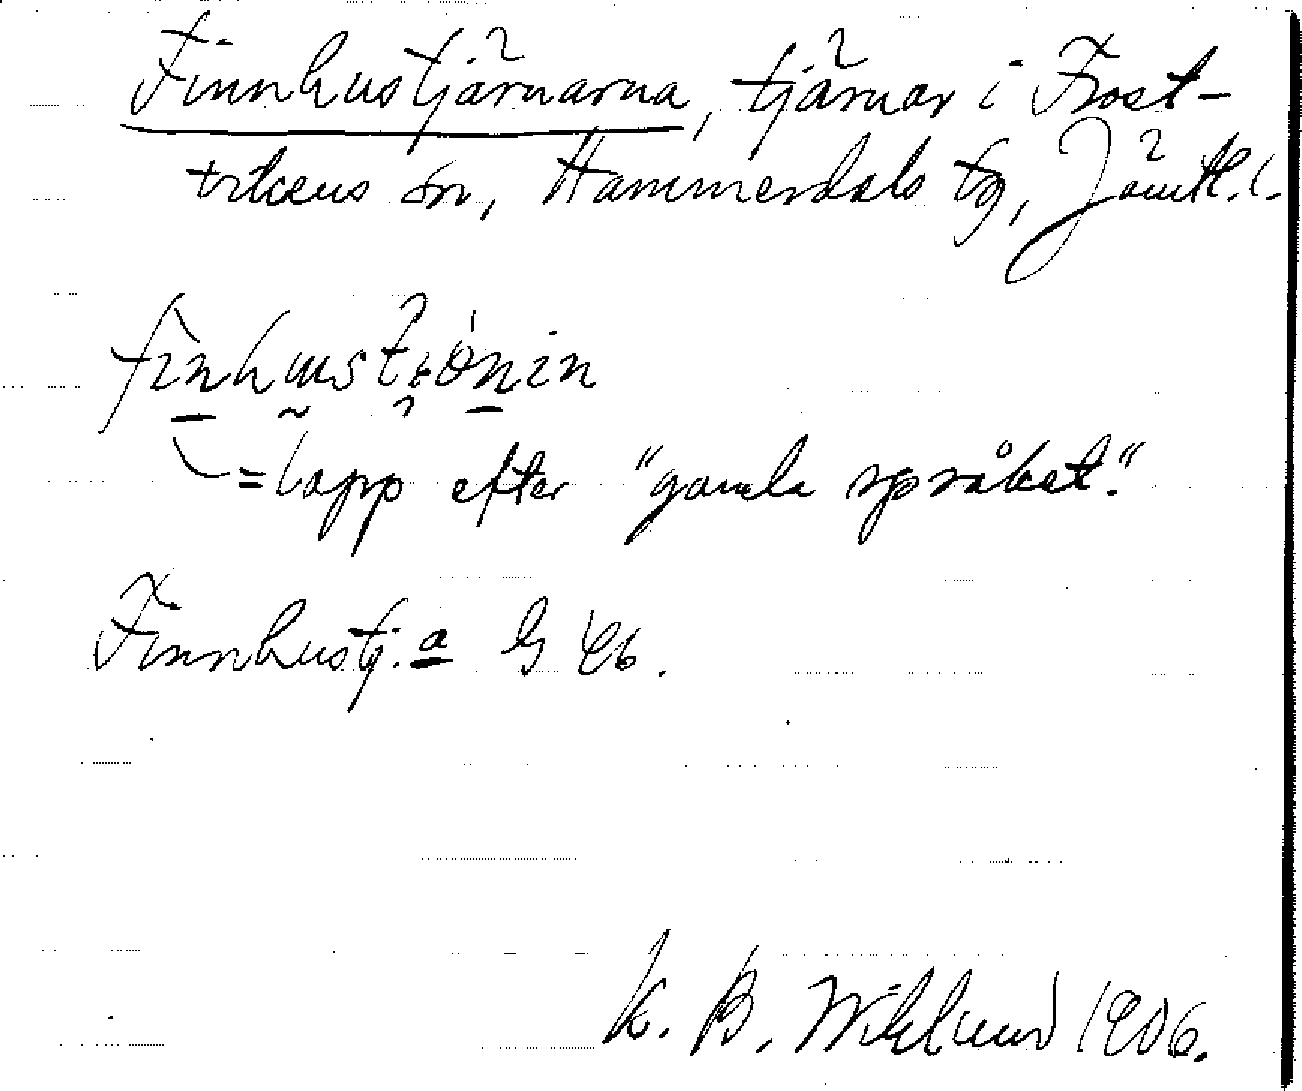 Finnhustjärnarna, tjärnar i Frost-
vikens sn, Hammerdals tg, Jämtl. l.
= lapp efter "gamla språket."
Finnhustj.a G Kb.
K. B. Wiklund 1906.